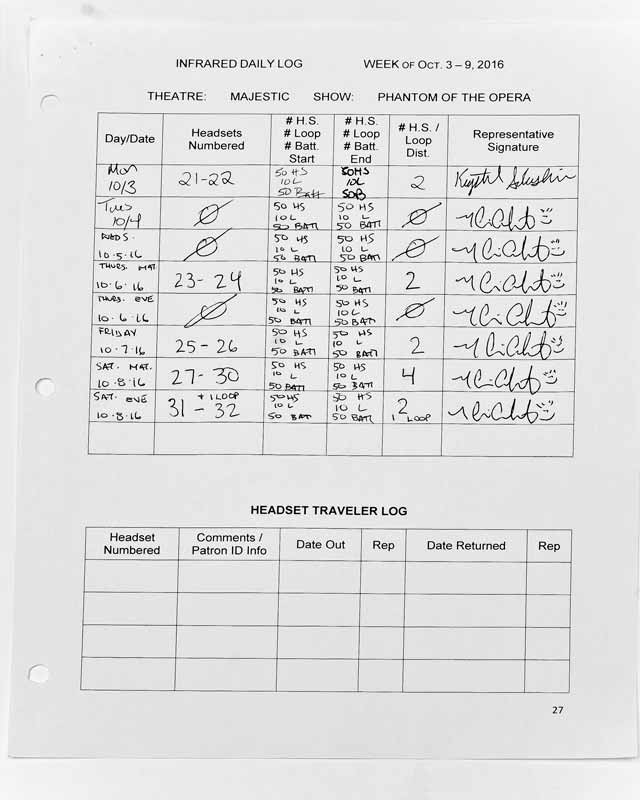 INFRARED DAILY LOG WEEK OF OCT. 3 – 9, 2016
THEATRE: MAJESTIC SHOW: PHANTOM OF THE OPERA
Day/Date Headsets Numbered # H.S. # Loop # Batt. Start # H.S. # Loop # Batt. End # H.S. / Loop Dist. Representative Signature
Mon 10/3 21-22 50 HS 10L 50 Batt 50HS 10L 50B 2 Krystal
Tues 10/4 Ø 50 HS 10L 50 BATT 50 HS 10 L 50 BATT Ø
WEDS. 10.5.16 Ø 50 HS 10 L 50 BATT 50 HS 10 L 50 BATT Ø
THURS. MAT 10.6.16 23-24 50 HS 10 L 50 BATT 50 HS 10 L 50 BATT 2
THURS. EVE 10.6.16 Ø 50 HS 10 L 50 BATT 50 HS 10 L 50 BATT Ø
FRIDAY 10.7.16 25-26 50 HS 10 L 50 BATT 50 HS 10 L 50 BATT 2
SAT. MAT. 10.8.16 27-30 50 HS 10 L 50 BATT 50 HS 10 L 50 BATT 4
SAT. EVE 10.8.16 31-32 + 1 LOOP 50HS 10 L 50 BAT 50 HS 10 L 50 BATT 2 1 LOOP
HEADSET TRAVELER LOG
Headset Numbered Comments / Patron ID Info Date Out Rep Date Returned Rep
27